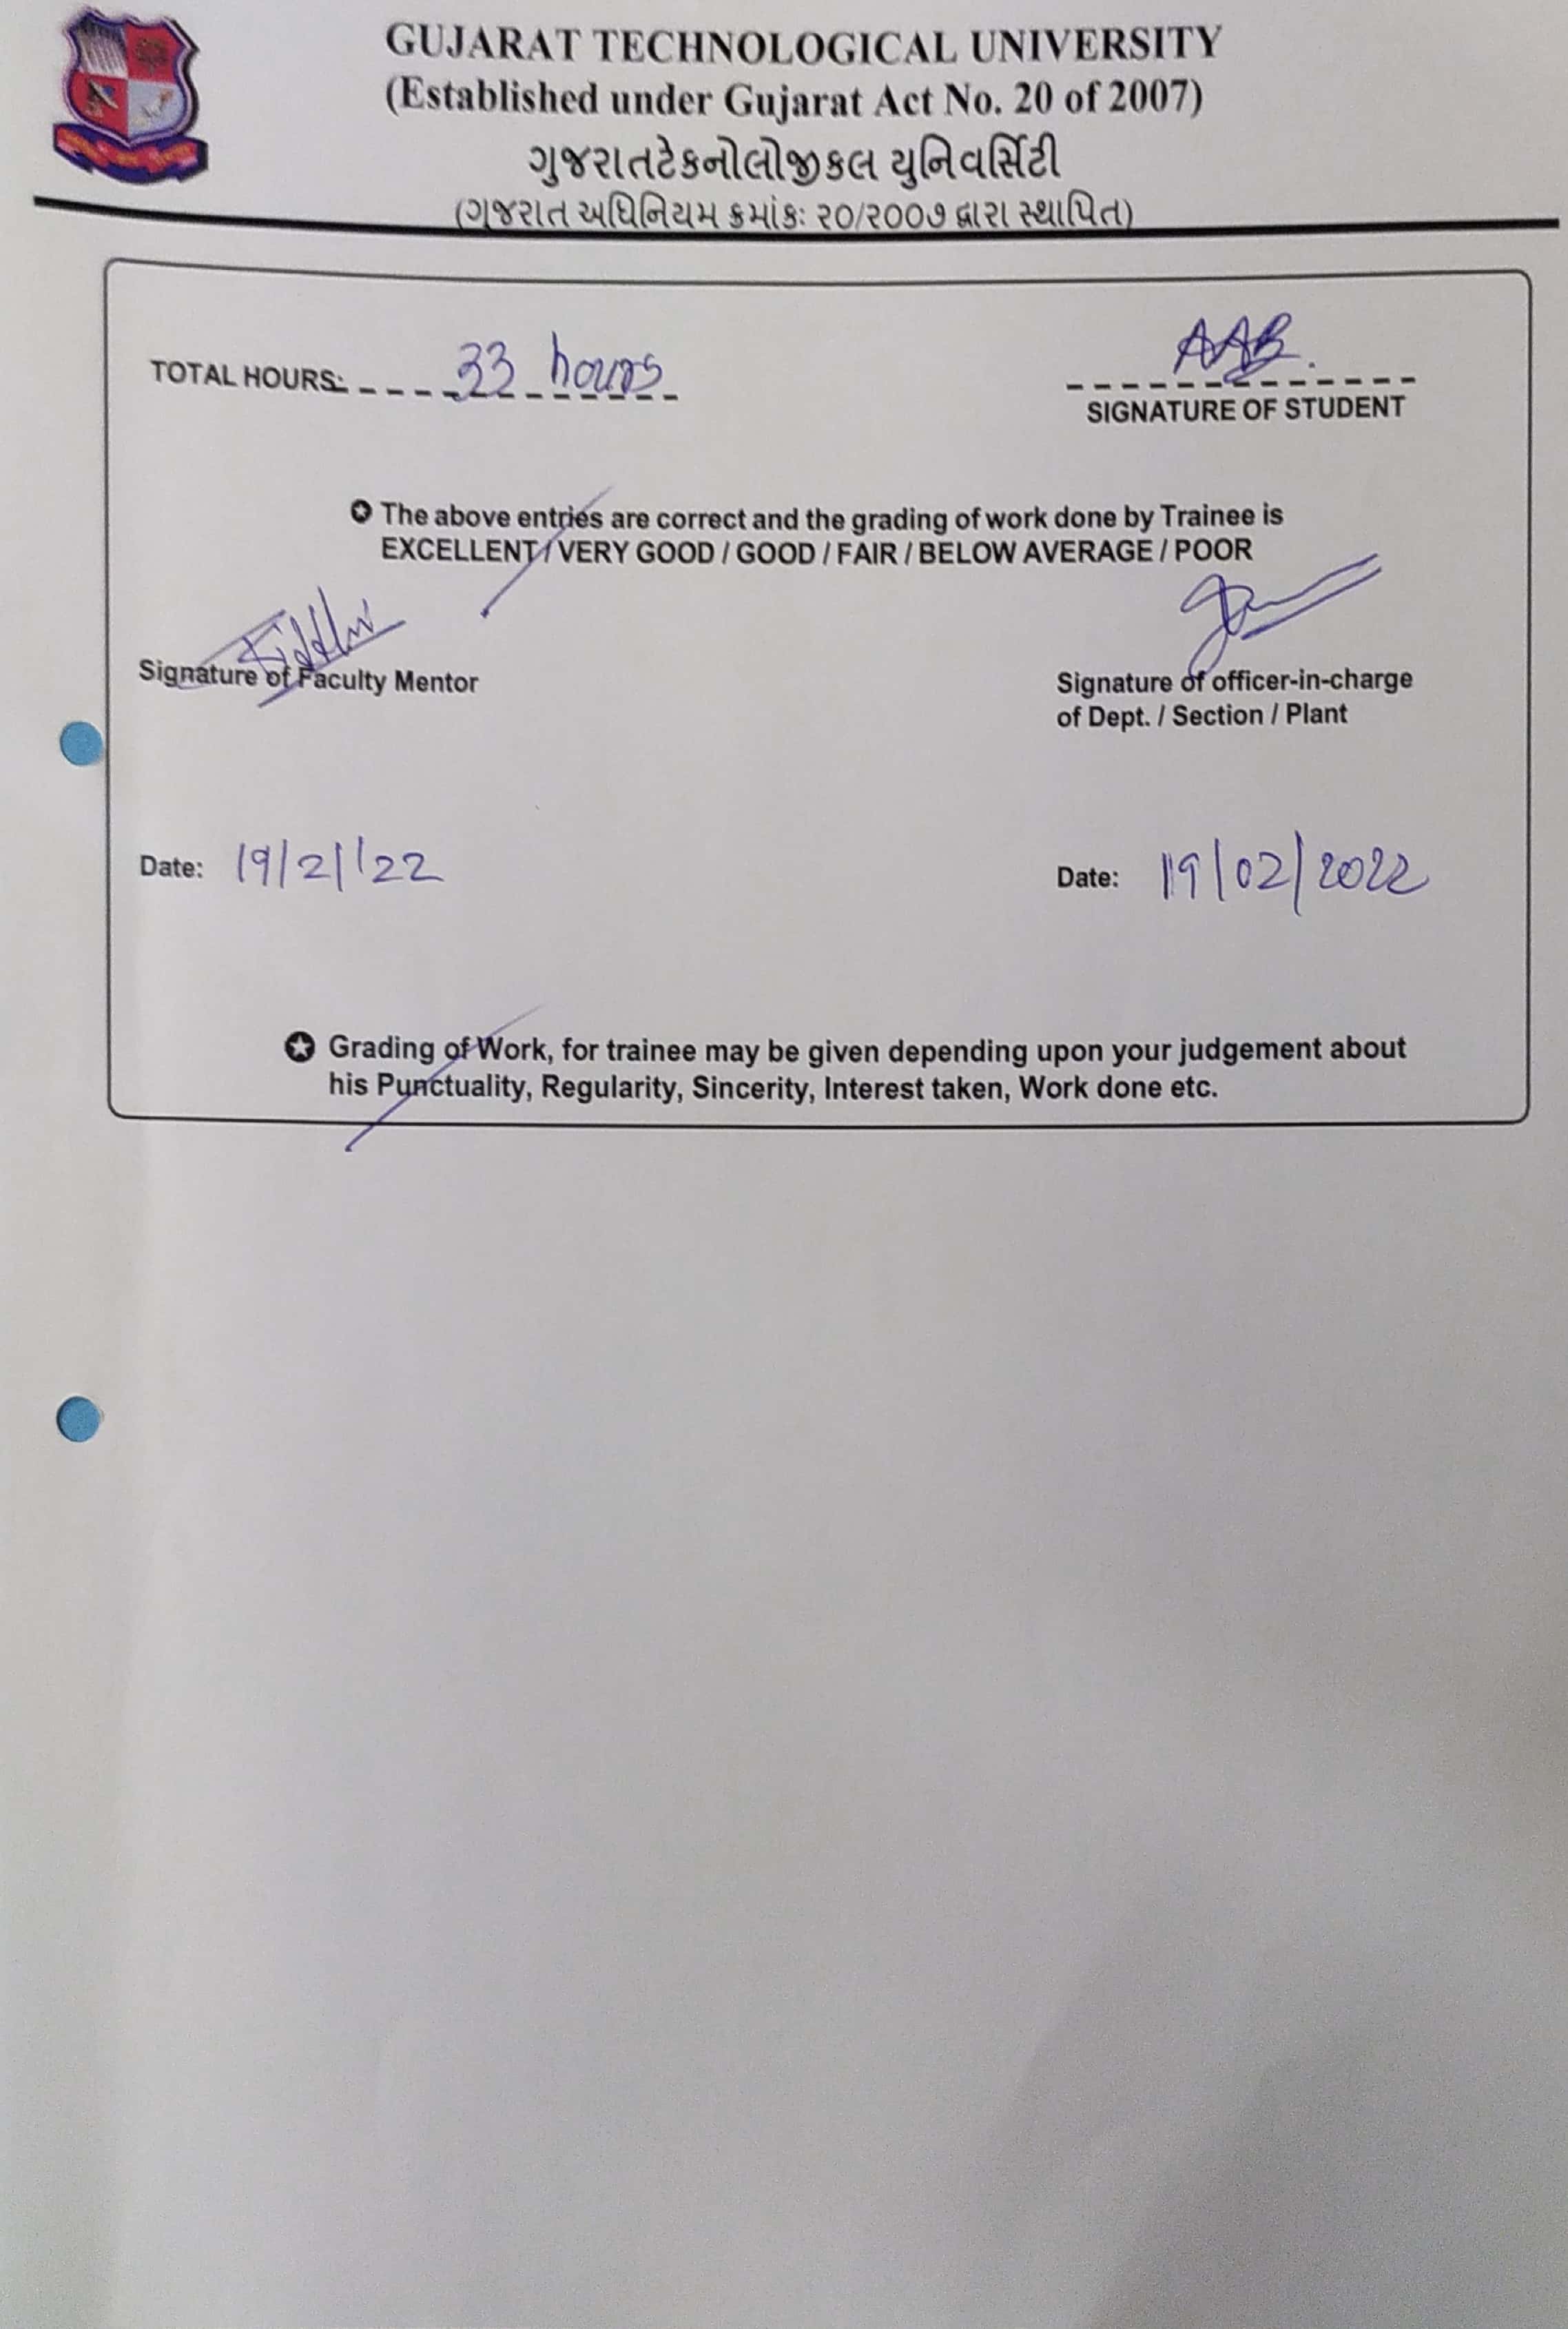 GUJARAT TECHNOLOGICAL UNIVERSITY
(Established under Gujarat Act No. 20 of 2007)
ગુજરાતટેકનોલોજીકલ યુનિવર્સિટી
(ગુજરાત અધિનિયમ ક્રમાંકઃ ૨૦/૨૦૦૭ દ્વારા સ્થાપિત)
TOTAL HOURS: 33 hours
AAB.
SIGNATURE OF STUDENT
The above entries are correct and the grading of work done by Trainee is
EXCELLENT / VERY GOOD / GOOD / FAIR / BELOW AVERAGE / POOR
Signature of Faculty Mentor
Signature of officer-in-charge
of Dept. / Section / Plant
Date: 19/2/'22
Date: 19/02/2022
Grading of Work, for trainee may be given depending upon your judgement about
his Punctuality, Regularity, Sincerity, Interest taken, Work done etc.